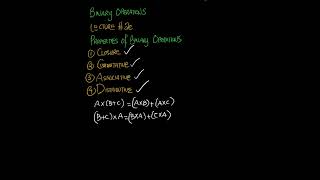 BINARY OPERATIONS
LECTURE #2e
PROPERTIES OF BINARY OPERATIONS
① CLOSURE ✓
② COMMUTATIVE ✓
③ ASSOCIATIVE ✓
④ DISTRIBUTIVE ✓
A×(B+C)=(A×B)+(A×C)
(B+C)×A=(B×A)+(C×A)